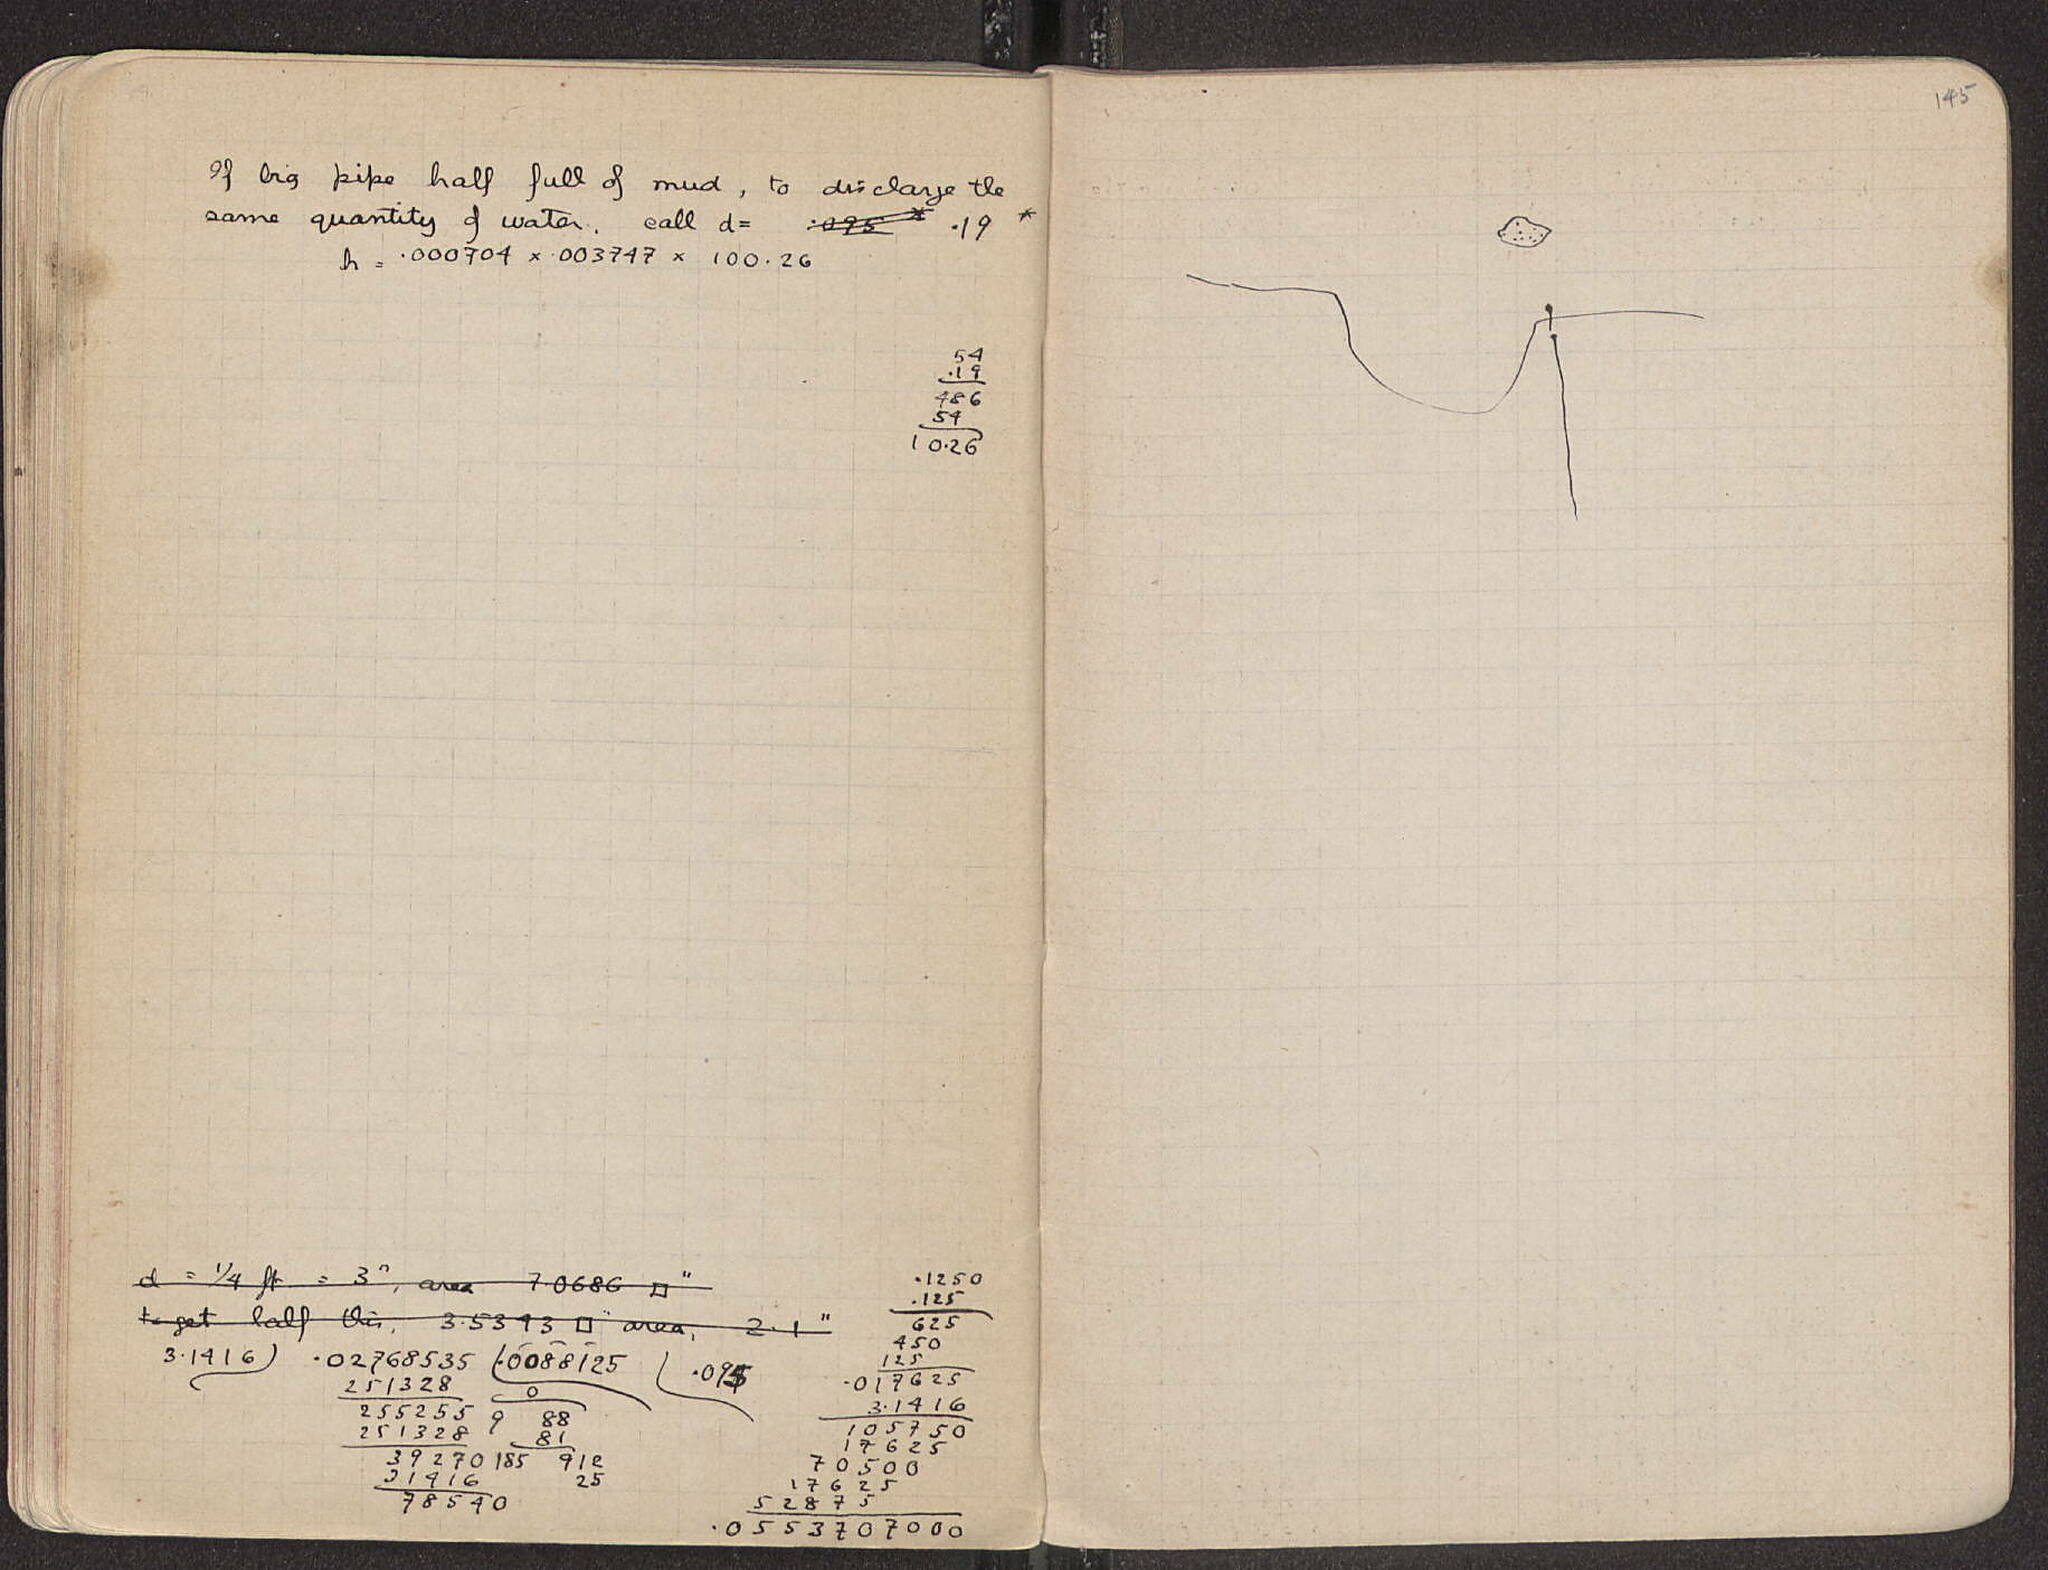 If big pipe half full of mud, to discharge the
same quantity of water, call d= .095 * .19 *
h = .000704 × .003747 × 100.26
54
.19
486
54
10.26
d = 1/4 ft = 3", area 7.0686 □"
to get half this, 3.5343 □" area, 2.1"
3.1416) .02768535 (.0088125 (.094
251328
255255
251328
39270
31416
78540
0
9 88
81
185 912
25
.1250
.125
625
450
125
.017625
3.1416
105750
17625
70500
17625
52875
.0553707000
145